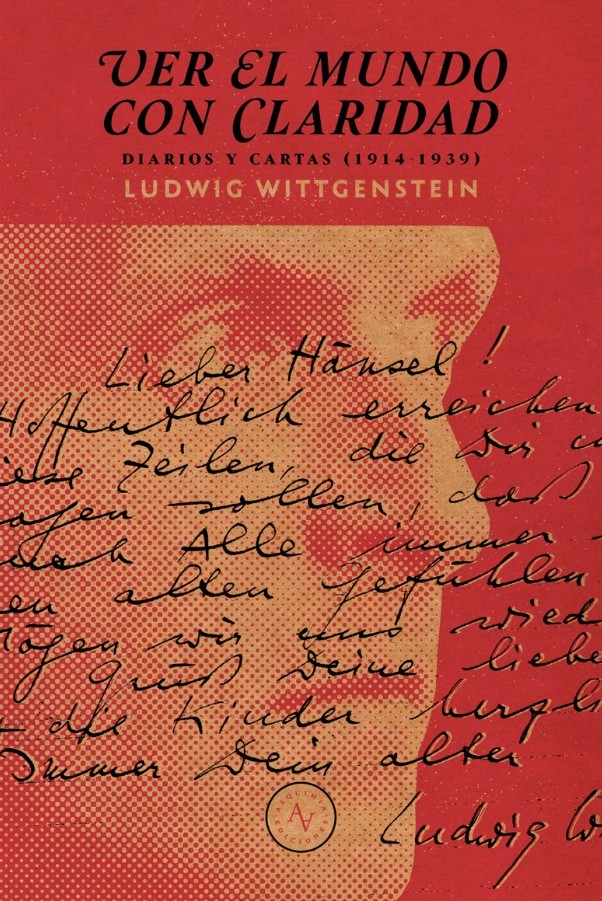 VER EL MUNDO
CON CLARIDAD
DIARIOS Y CARTAS (1914-1939)
LUDWIG WITTGENSTEIN
Lieber Hänsel!
Hoffentlich erreichen
iese Zeilen, die Dir
agen sollen, daß
uch Alle immer
en alten Gefühlen
mögen wir uns wied
Grüß Deine liebe
die Kinder herzli
Immer Dein alter
Ludwig W